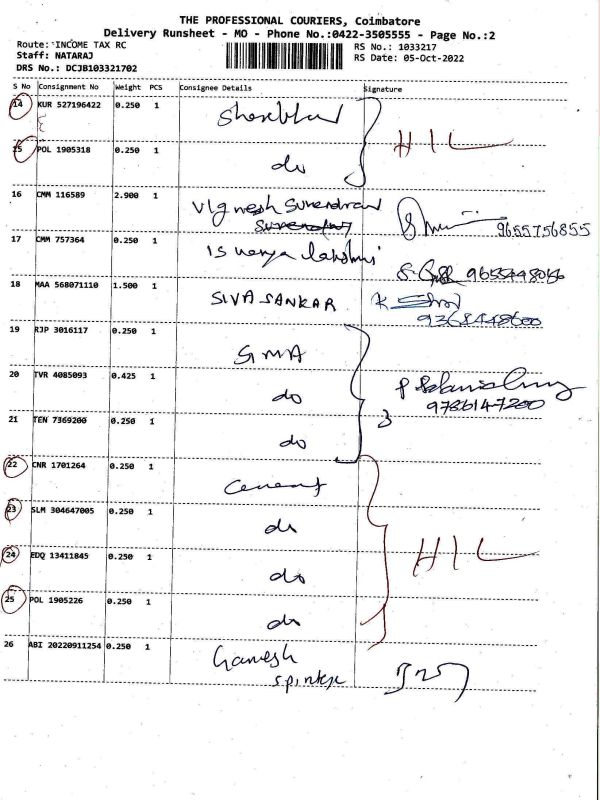 THE PROFESSIONAL COURIERS, Coimbatore
Delivery Runsheet - MO - Phone No.:0422-3505555 - Page No.:2
Route: INCOME TAX RC
RS No.: 1033217
Staff: NATARAJ
RS Date: 05-Oct-2022
DRS No.: DCJB103321702
S No Consignment No Weight PCS Consignee Details Signature
14 KUR 527196422 0.250 1
HIL
15 POL 1905318 0.250 1 do
16 CMM 116589 2.900 1 Vignesh Surendran
9655756855
17 CMM 757364 0.250 1 Iswarya lakshmi
18 MAA 568071110 1.500 1 SIVA SANKAR
19 RJP 3016117 0.250 1 GMA
20 TVR 4085093 0.425 1 do
9786147200
21 TEN 7369200 0.250 1 do
3
22 CNR 1701264 0.250 1
23 SLM 304647005 0.250 1 do
HIL
24 EDQ 13411845 0.250 1 do
25 POL 1905226 0.250 1 do
26 ABI 20220911254 0.250 1 Ganesh